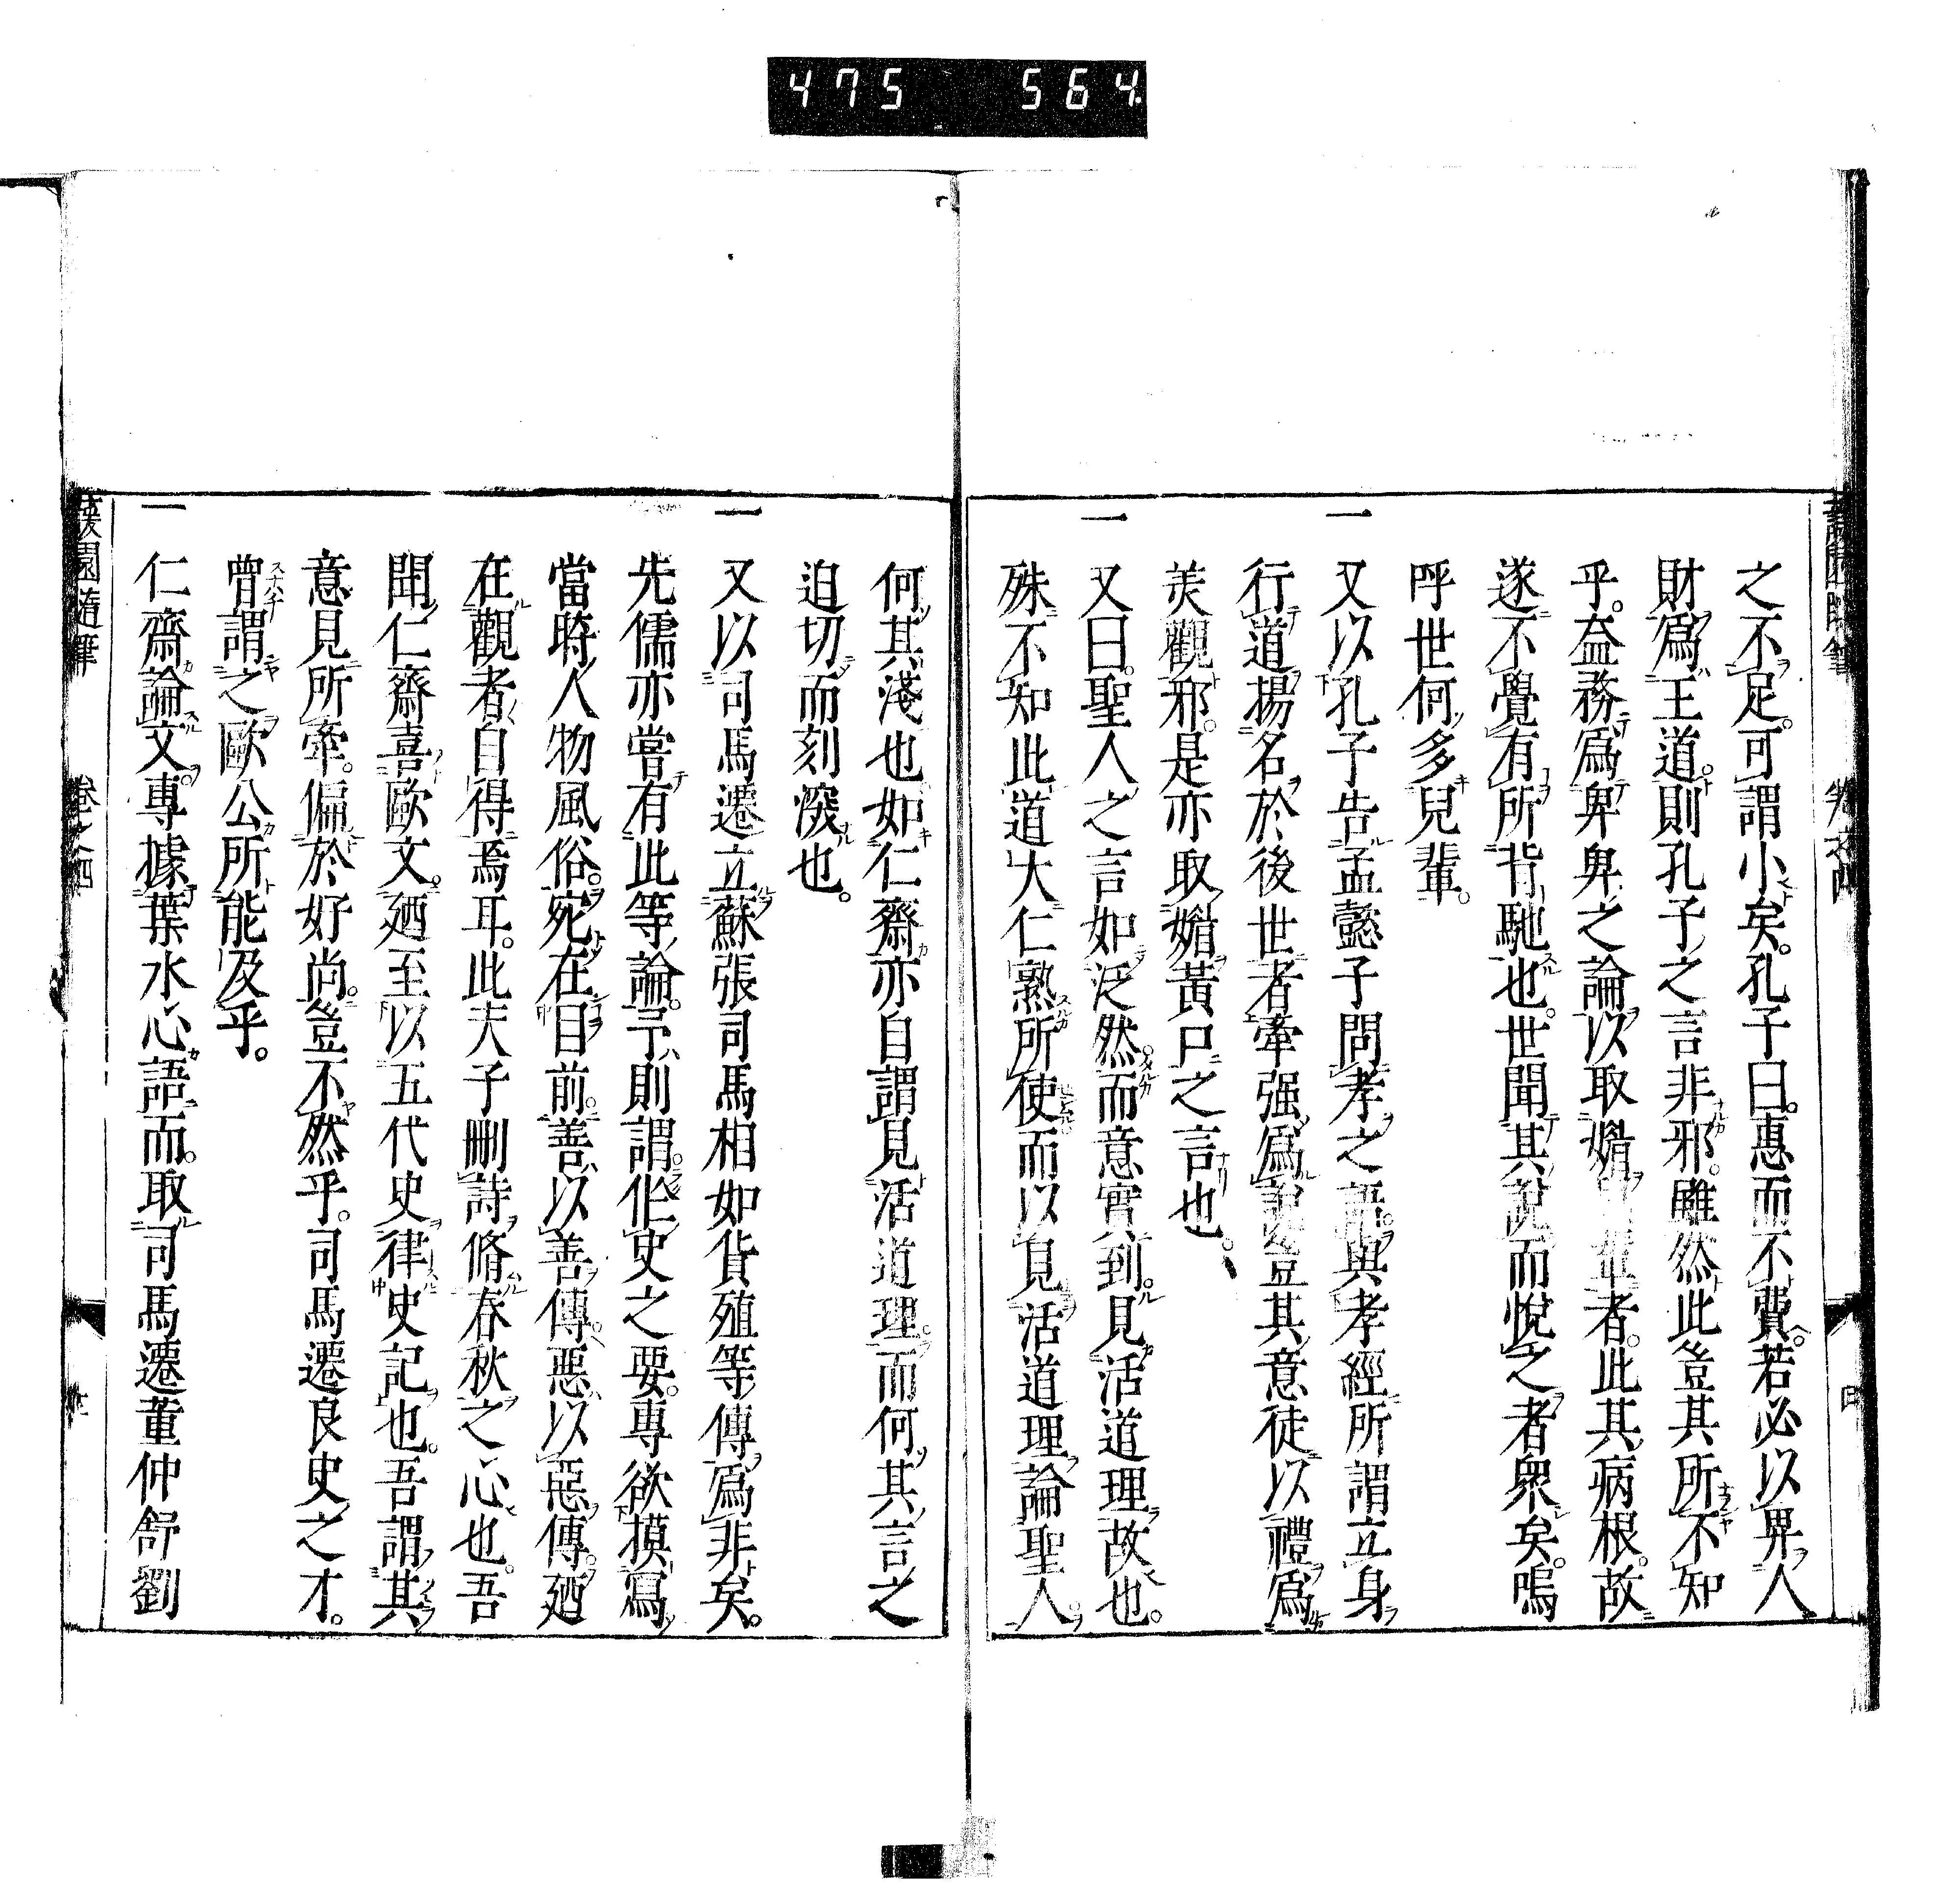 475 564
之不足。可謂小矣。孔子曰。惠而不費。若必以畀人
財爲王道。則孔子之言非邪。雖然此豈其所不知
乎。益務爲卑卑之論以取媚者。此其病根。故
遂不覺有所背馳也。世聞其說而悅之者衆矣。嗚
呼世何多兒輩。
一又以孔子告孟懿子問孝之語。與孝經所謂立身
行道揚名於後世者牽强爲說豈其意徒以禮爲
美觀邪。是亦取媚黃口之言也。
一又曰。聖人之言如泛然。而意實到。見活道理故也。
殊不知此道大仁熟所使而以見活道理論聖人。
何其淺也如仁齋亦自謂見活道理。而何其言之
迫切而刻深也。
一又以司馬遷立蘇張司馬相如貨殖等傳爲非矣。
先儒亦嘗有此等論。予則謂。作史之要。專欲摸寫
當時人物風俗。宛在目前。善以善傳。惡以惡傳。廼
在觀者自得焉耳。此夫子刪詩脩春秋之心也。吾
聞仁齋喜歐文。廼至以五代史律史記也。吾謂其
意見所牽。偏於好尚。豈不然乎。司馬遷良史之才。
曾謂之歐公所能及乎。
一仁齋論文。專據葉水心語而。取司馬遷董仲舒劉
蘐園隨筆 卷之四